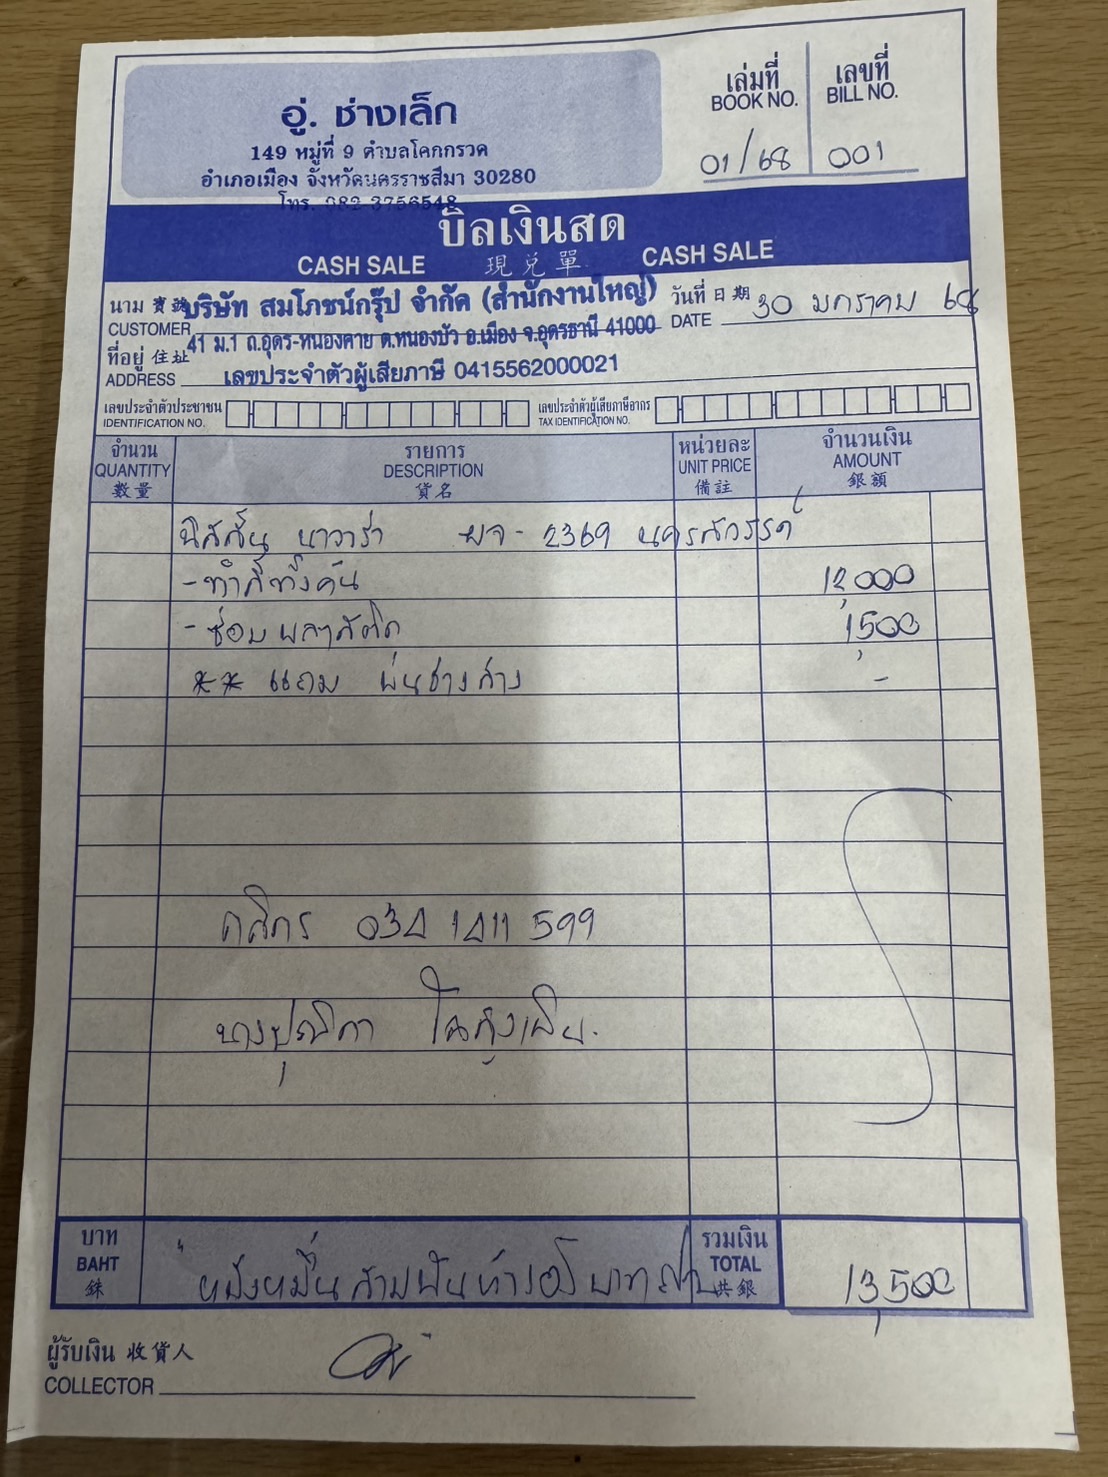 อู่. ช่างเล็ก
149 หมู่ที่ 9 ตำบลโคกกรวด
อำเภอเมือง จังหวัดนครราชสีมา 30280
โทร. 082-3756548
เล่มที่ เลขที่
BOOK NO. BILL NO.
01/68 001
บิลเงินสด
CASH SALE 現兌單 CASH SALE
นาม 寶號 บริษัท สมโภชน์กรุ๊ป จำกัด (สำนักงานใหญ่) วันที่ 日期 30 มกราคม 68
CUSTOMER DATE
ที่อยู่ 住址 41 ม.1 ถ.อุดร-หนองคาย ต.หนองบัว อ.เมือง จ.อุดรธานี 41000
ADDRESS เลขประจำตัวผู้เสียภาษี 0415562000021
เลขประจำตัวประชาชน เลขประจำตัวผู้เสียภาษีอากร
IDENTIFICATION NO. TAX IDENTIFICATION NO.
จำนวน รายการ หน่วยละ จำนวนเงิน
QUANTITY DESCRIPTION UNIT PRICE AMOUNT
數量 貨名 備註 銀額
นิสสัน นาวาร่า ผจ - 2369 นครสวรรค์
- ทำสีทั้งคัน 12,000
- ซ่อมพลาสติก 1,500
** แถม พ่นช่วงล่าง -
กสิกร 034 1411 599
บาท รวมเงิน
BAHT หนึ่งหมื่นสามพันห้าร้อยบาทถ้วน TOTAL 13,500
銖 共銀
ผู้รับเงิน 收貨人
COLLECTOR